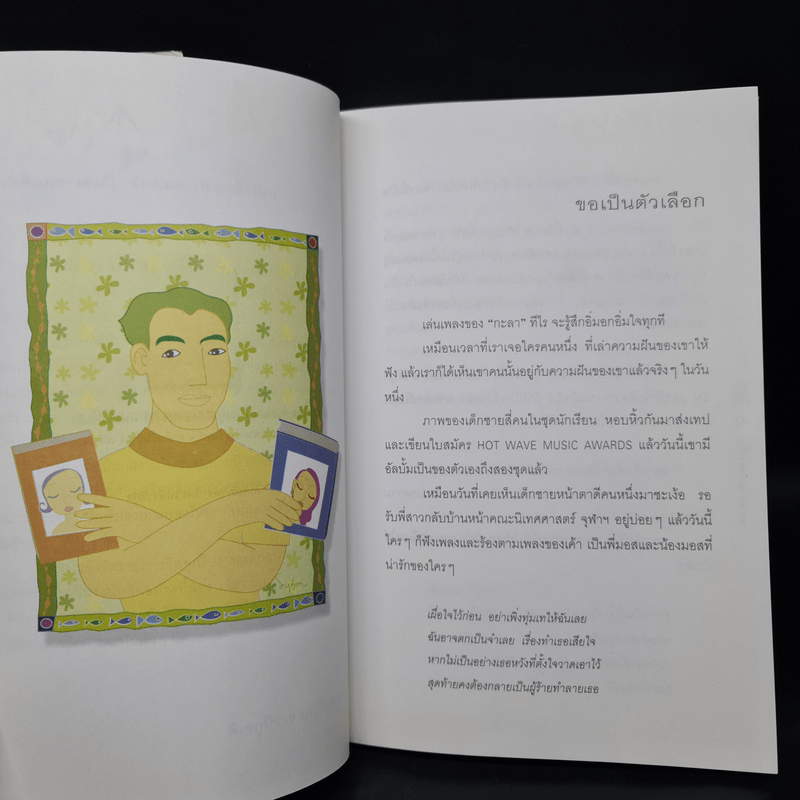 ขอเป็นตัวเลือก
เล่นเพลงของ “กะลา” ทีไร จะรู้สึกอิ่มอกอิ่มใจทุกที
เหมือนเวลาที่เราเจอใครคนหนึ่ง ที่เล่าความฝันของเขาให้
ฟัง แล้วเราก็ได้เห็นเขาคนนั้นอยู่กับความฝันของเขาแล้วจริงๆ ในวัน
หนึ่ง
ภาพของเด็กชายสี่คนในชุดนักเรียน หอบหิ้วกันมาส่งเทป
และเขียนใบสมัคร HOT WAVE MUSIC AWARDS แล้ววันนี้เขามี
อัลบั้มเป็นของตัวเองถึงสองชุดแล้ว
เหมือนวันที่เคยเห็นเด็กชายหน้าตาดีคนหนึ่งมาชะเง้อ รอ
รับพี่สาวกลับบ้านหน้าคณะนิเทศศาสตร์ จุฬาฯ อยู่บ่อยๆ แล้ววันนี้
ใครๆ ก็ฟังเพลงและร้องตามเพลงของเค้า เป็นพี่มอสและน้องมอสที่
น่ารักของใครๆ
เผื่อใจไว้ก่อน อย่าเพิ่งทุ่มเทให้ฉันเลย
ฉันอาจตกเป็นจำเลย เรื่องทำเธอเสียใจ
หากไม่เป็นอย่างเธอหวังที่ตั้งใจวาดเอาไว้
สุดท้ายคงต้องกลายเป็นผู้ร้ายทำลายเธอ